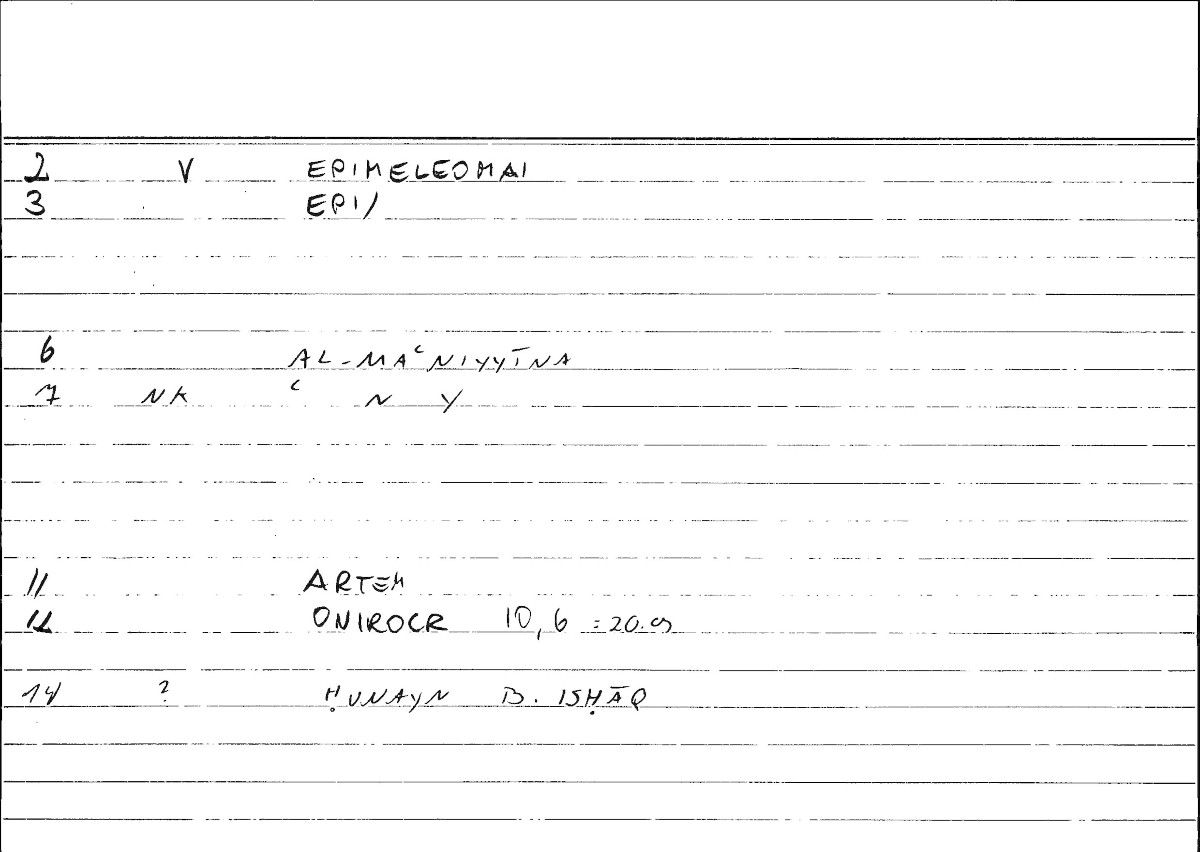 2 V EPIMELEOMAI
3 EPI/
6 AL-MAʿNIYYĪNA
7 NK ʿ N Y
11 ARTEM
12 ONIROCR 10,6 =20.9
14 ? ḤUNAYN B. ISḤĀQ